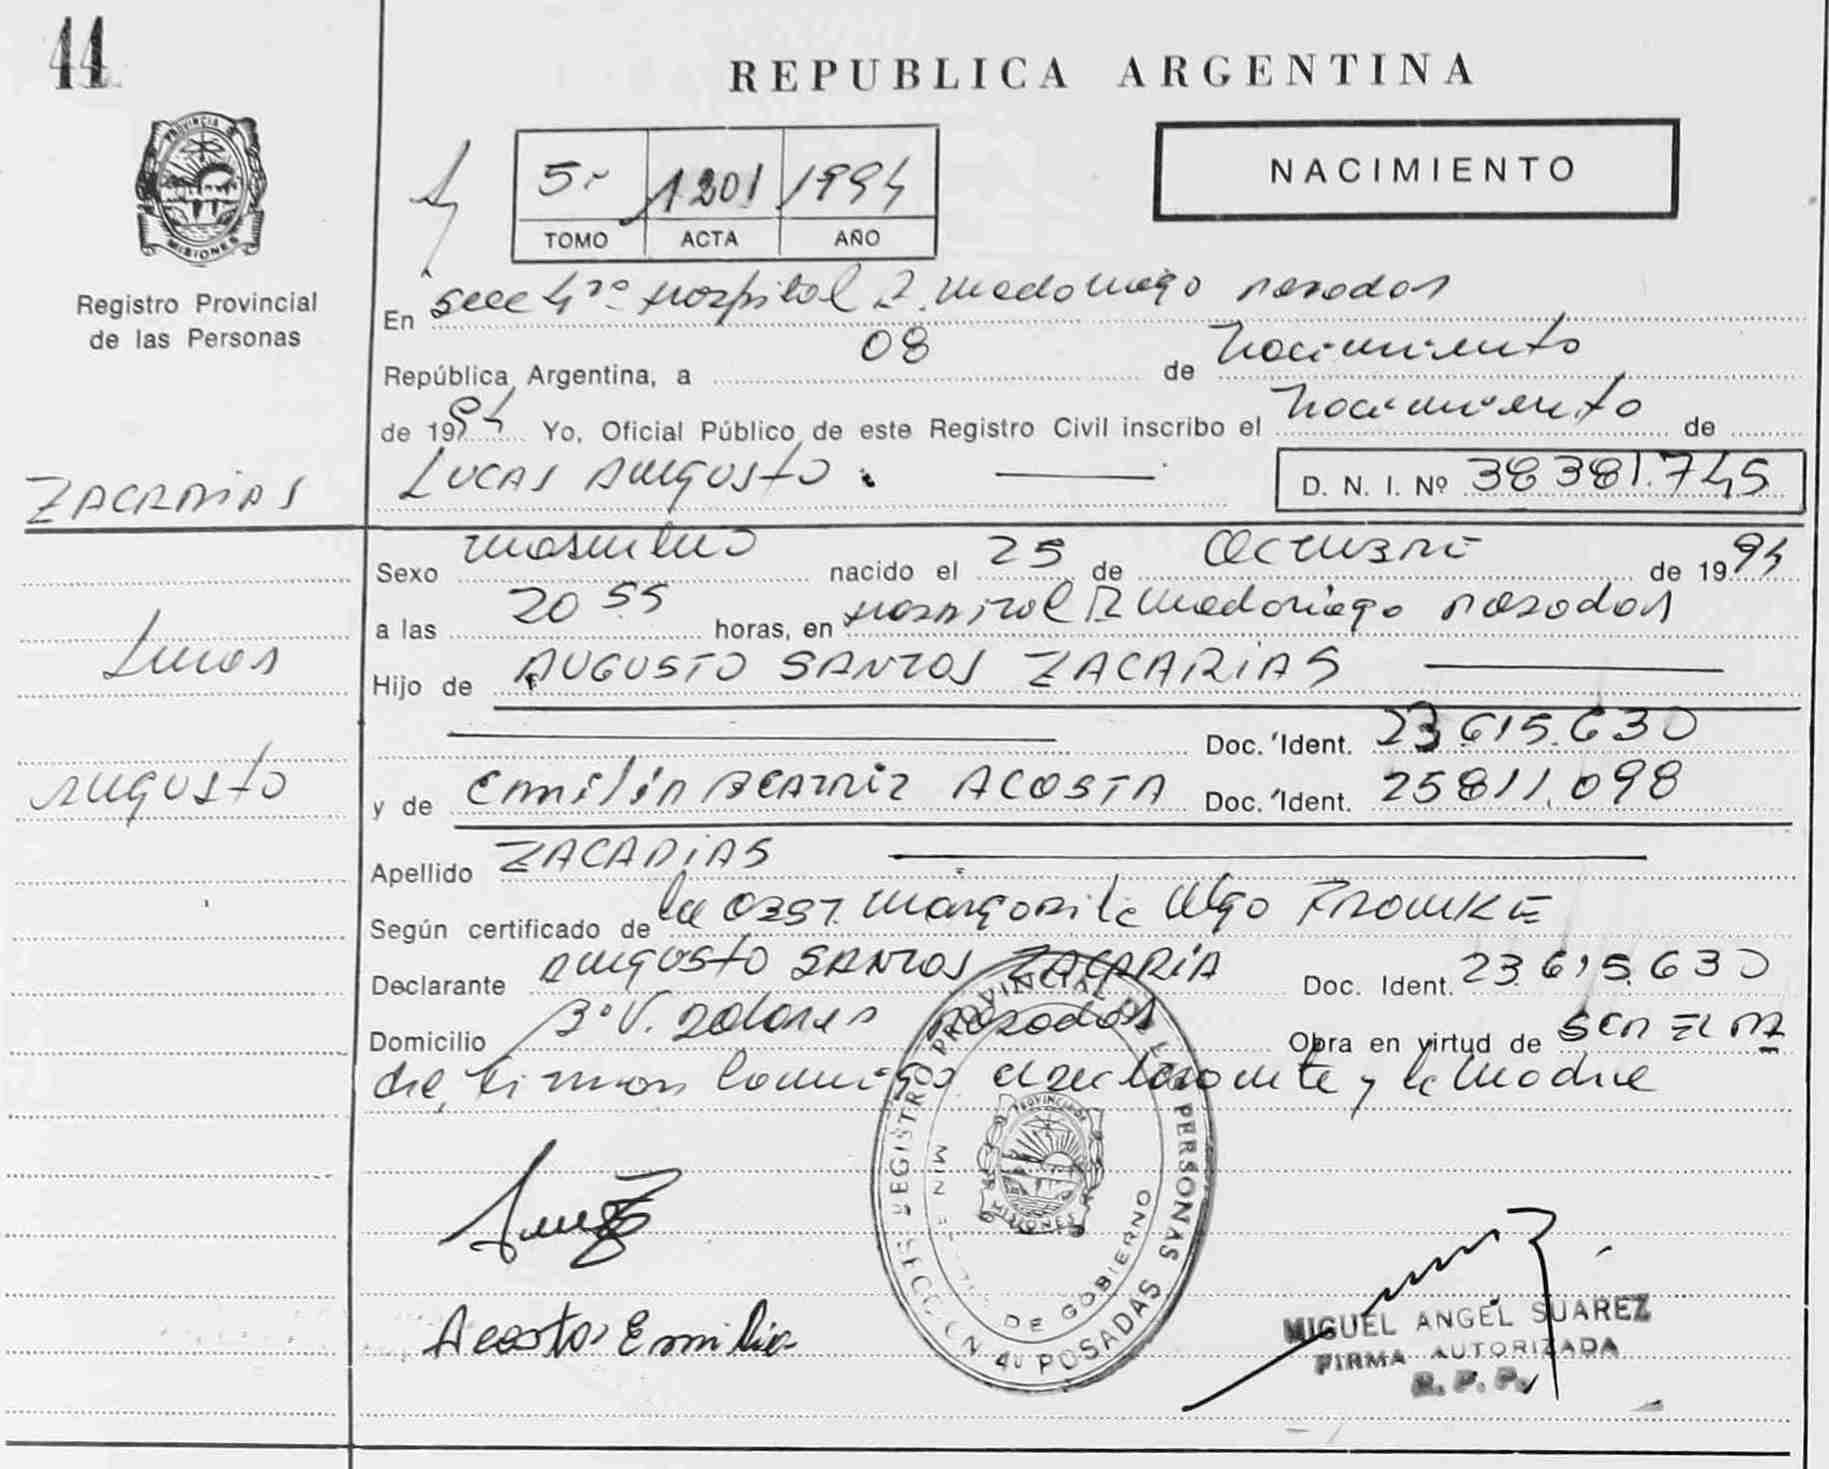 44
REPUBLICA ARGENTINA
PROVINCIA DE MISIONES
Registro Provincial
de las Personas
5º 1201 1994
TOMO ACTA AÑO
NACIMIENTO
En Secc 4ta Hospital R. Madariaga Posadas
República Argentina, a 08 de Nacimiento
de 1994 Yo, Oficial Público de este Registro Civil inscribo el Nacimiento de
LUCAS AUGUSTO. D. N. I. Nº 38381.745
ZACARIAS
Lucas
Augusto
Sexo Masculino nacido el 25 de OCTUBRE de 1994
a las 20 55 horas, en Hospital R Madariaga Posadas
Hijo de AUGUSTO SANTOS ZACARIAS
Doc. Ident. 23.615.630
y de Emilia BEATRIZ ACOSTA Doc. Ident. 25811.098
Apellido ZACARIAS
Según certificado de la OBST. Margarita Olga
Declarante AUGUSTO SANTOS ZACARIA Doc. Ident. 23.615.630
Domicilio Bº V. Dolores Posadas Obra en virtud de SER EL PA
dre, firman conmigo el declarante y la Madre
REGISTRO PROVINCIAL DE LAS PERSONAS
SECCION 4º POSADAS
DE GOBIERNO
MISIONES
Acosta Emilia
MIGUEL ANGEL SUAREZ
FIRMA AUTORIZADA
R. P. P.